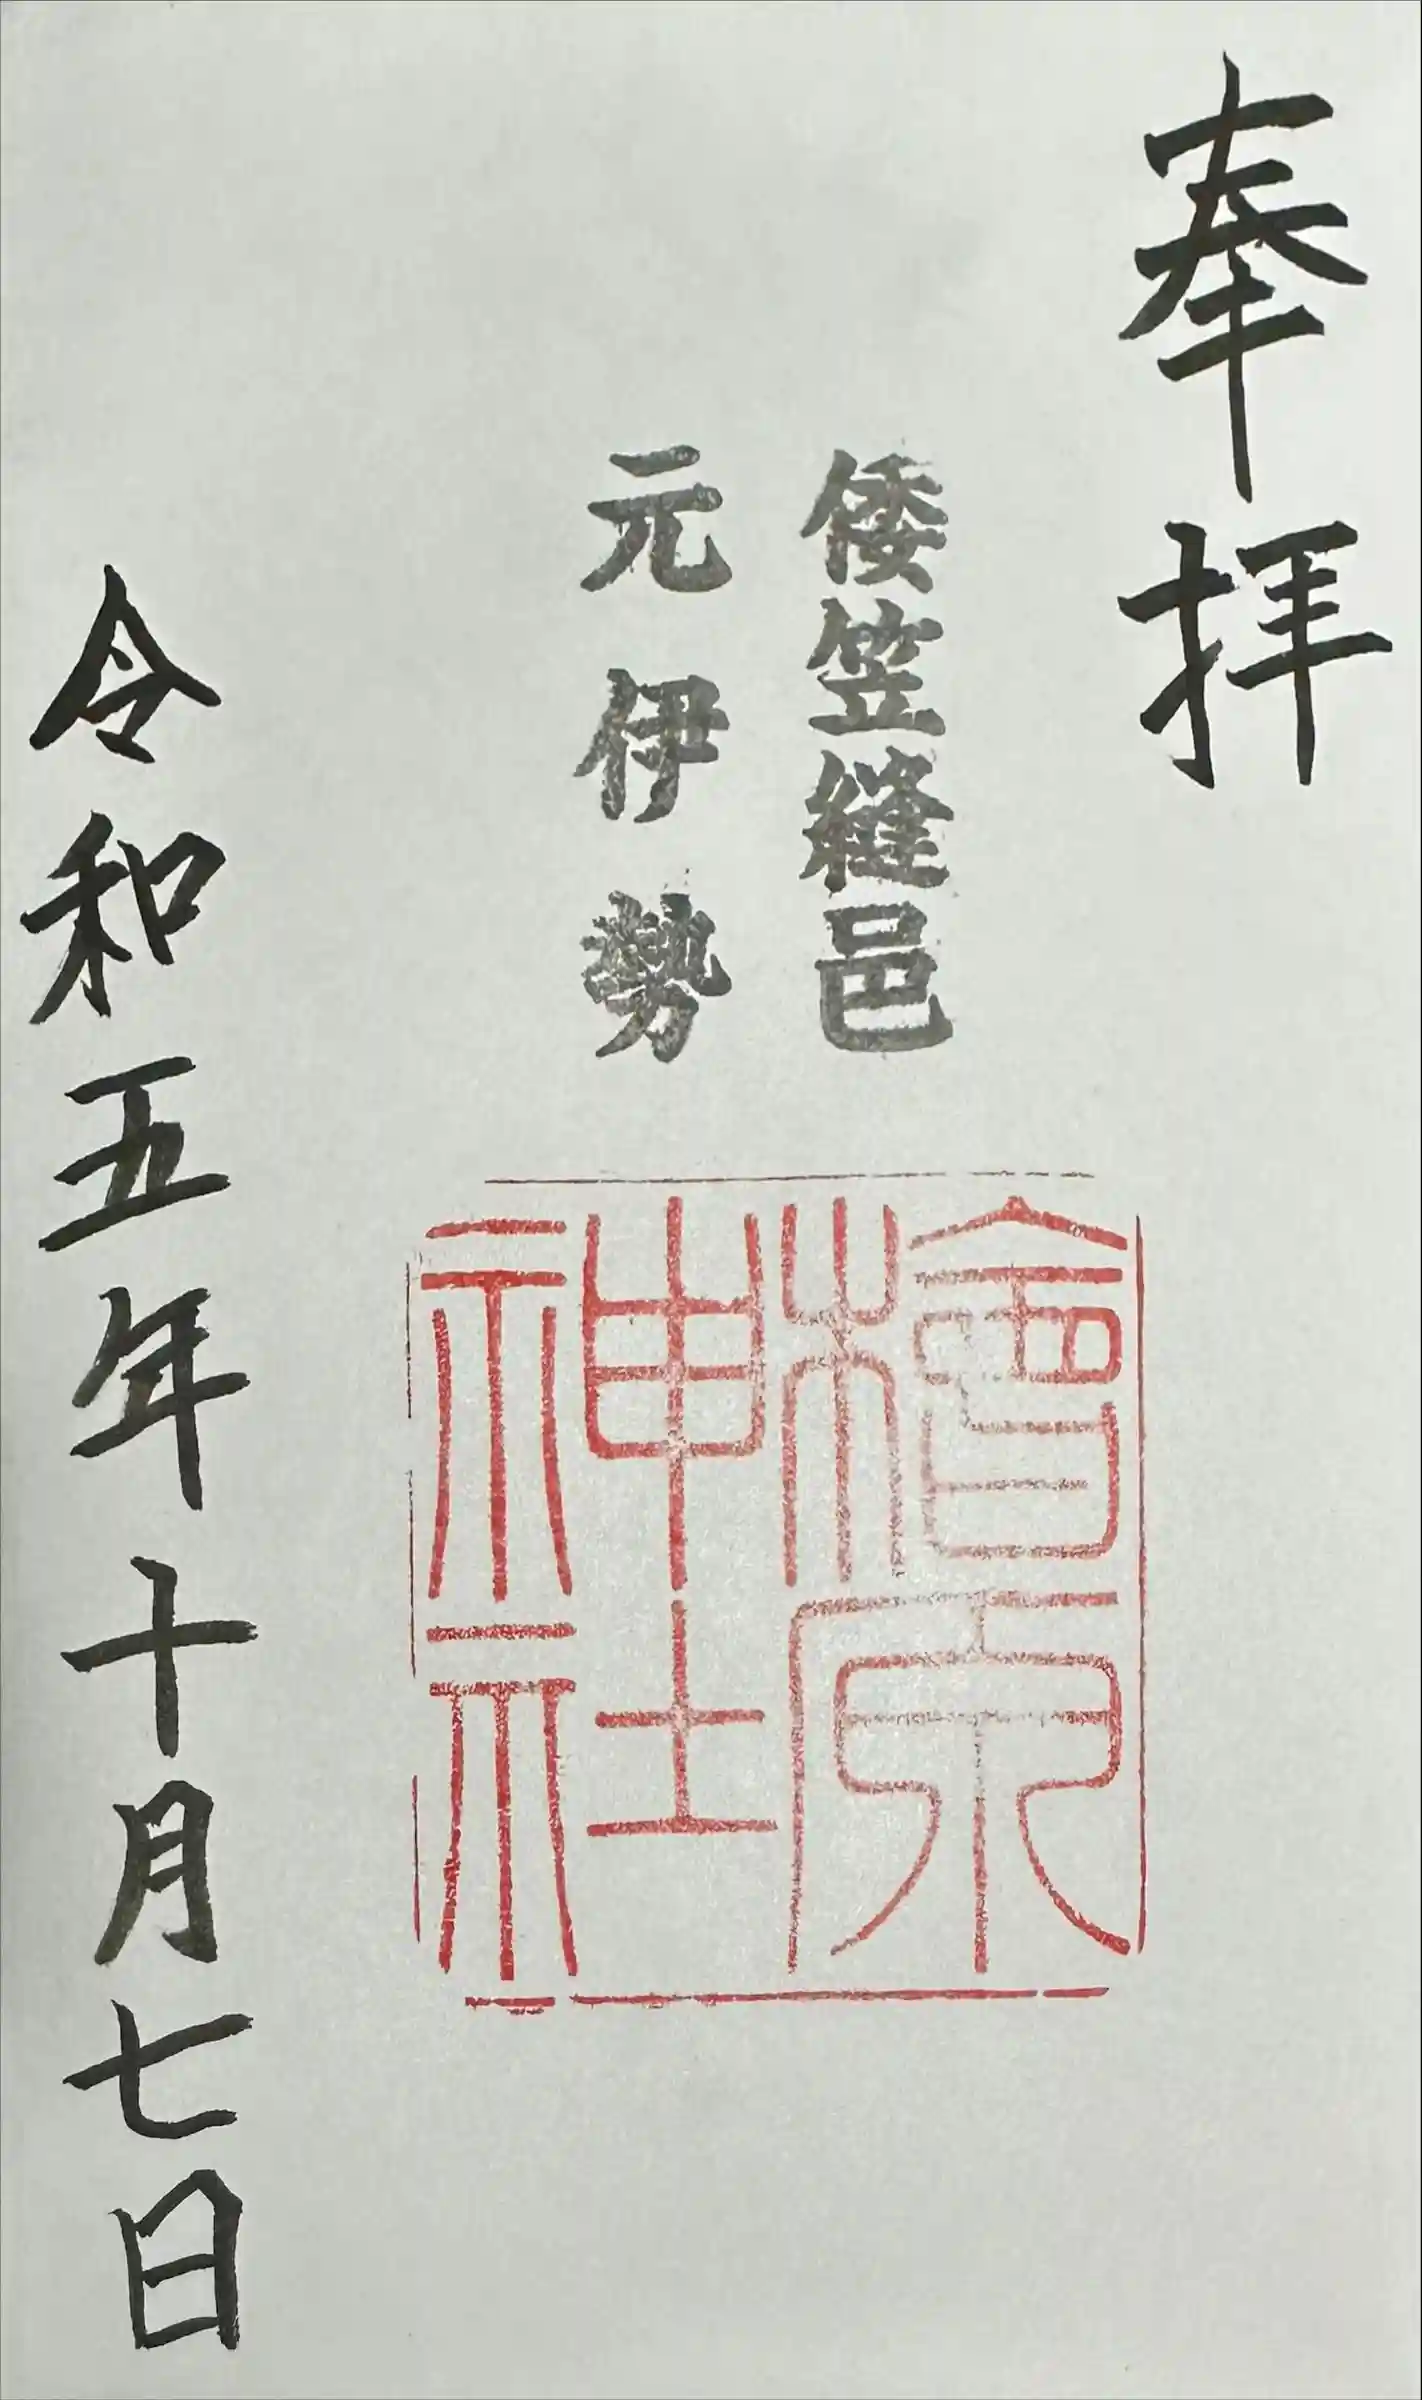 奉拝
倭笠縫邑
元伊勢
檜原
神社
令和五年十月七日